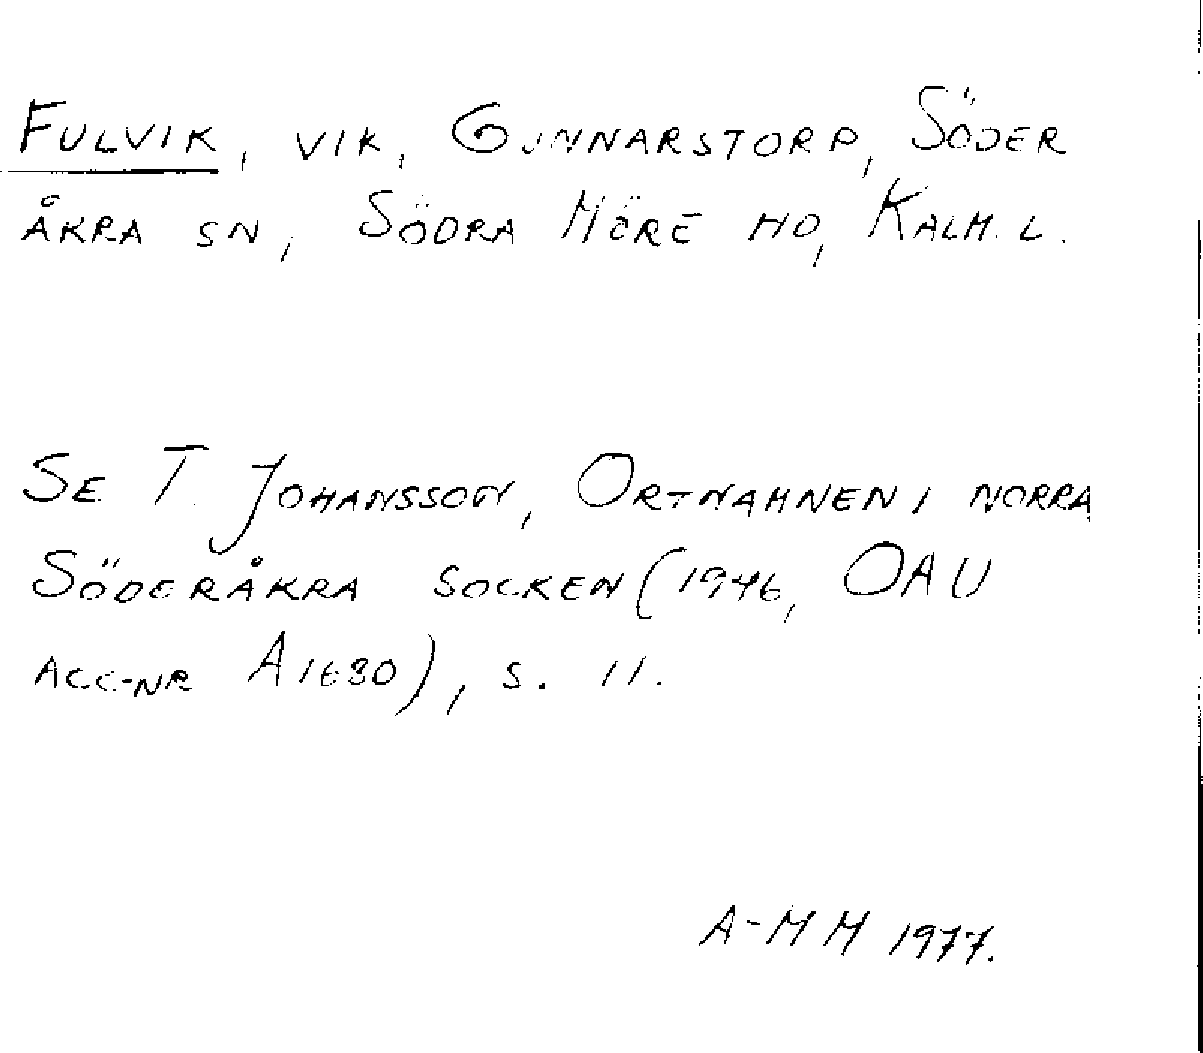 FULVIK, VIK, GUNNARSTORP, SÖDER
ÅKRA SN, SÖDRA MÖRE HD, KALM. L.
SE T. JOHANSSON, ORTNAMNEN I NORRA
SÖDERÅKRA SOCKEN (1946, OAU
ACC-NR A1680), S. 11.
A-MM 1977.